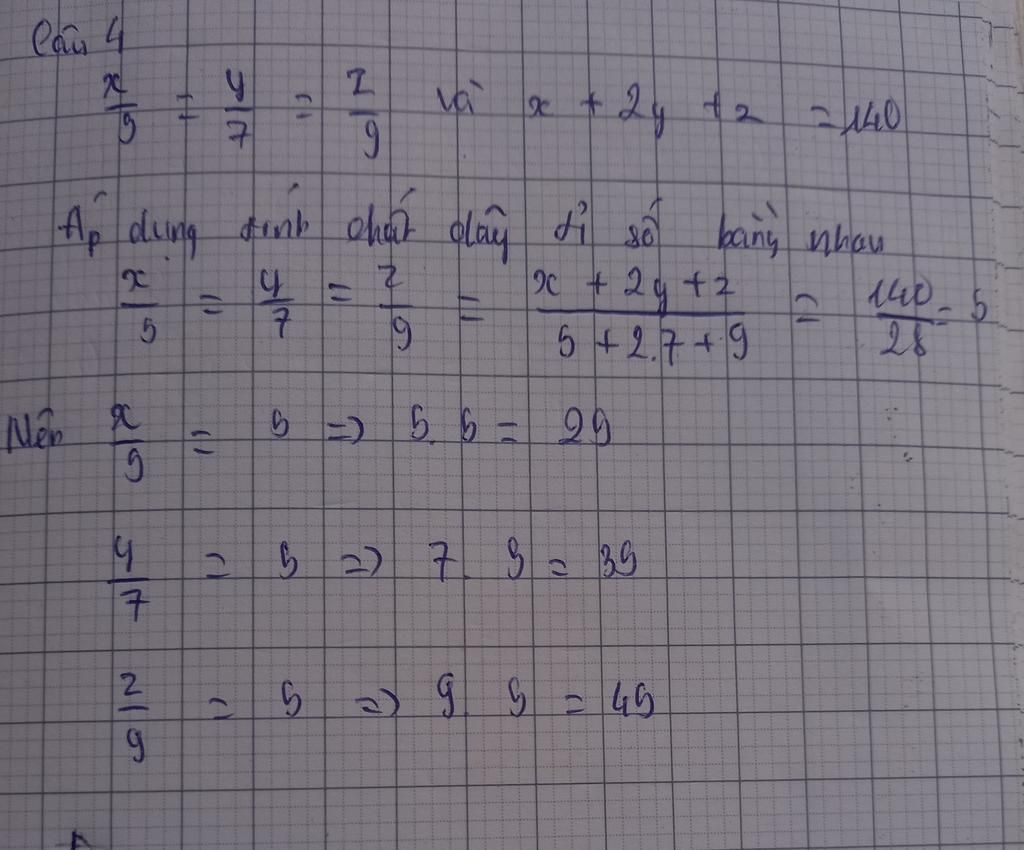 Câu 4
x/5 = y/7 = z/9 và x + 2y + z = 140
Áp dụng tính chất dãy tỉ số bằng nhau
x/5 = y/7 = z/9 = (x + 2y + z)/(5 + 2.7 + 9) = 140/28 = 5
Nên x/5 = 5 => 5.5 = 25
y/7 = 5 => 7.5 = 35
z/9 = 5 => 9.5 = 45